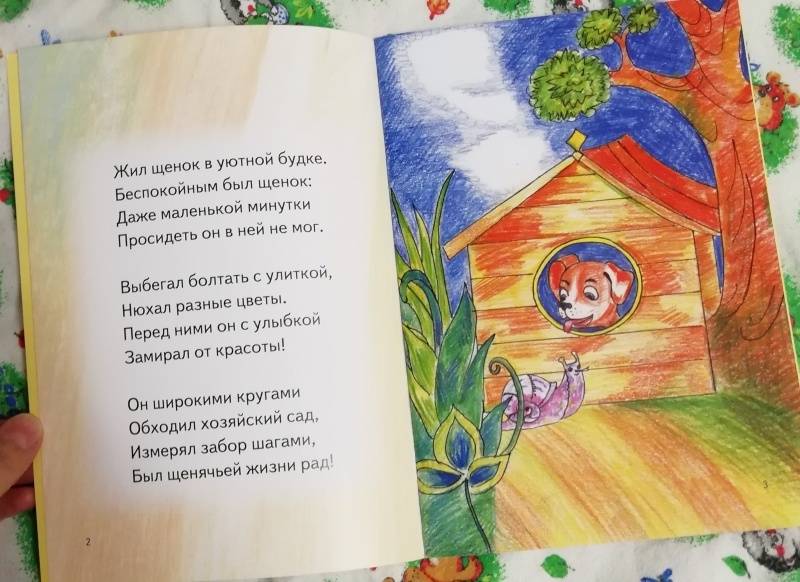 Жил щенок в уютной будке.
Беспокойным был щенок:
Даже маленькой минутки
Просидеть он в ней не мог.
Выбегал болтать с улиткой,
Нюхал разные цветы.
Перед ними он с улыбкой
Замирал от красоты!
Он широкими кругами
Обходил хозяйский сад,
Измерял забор шагами,
Был щенячьей жизни рад!
2
3